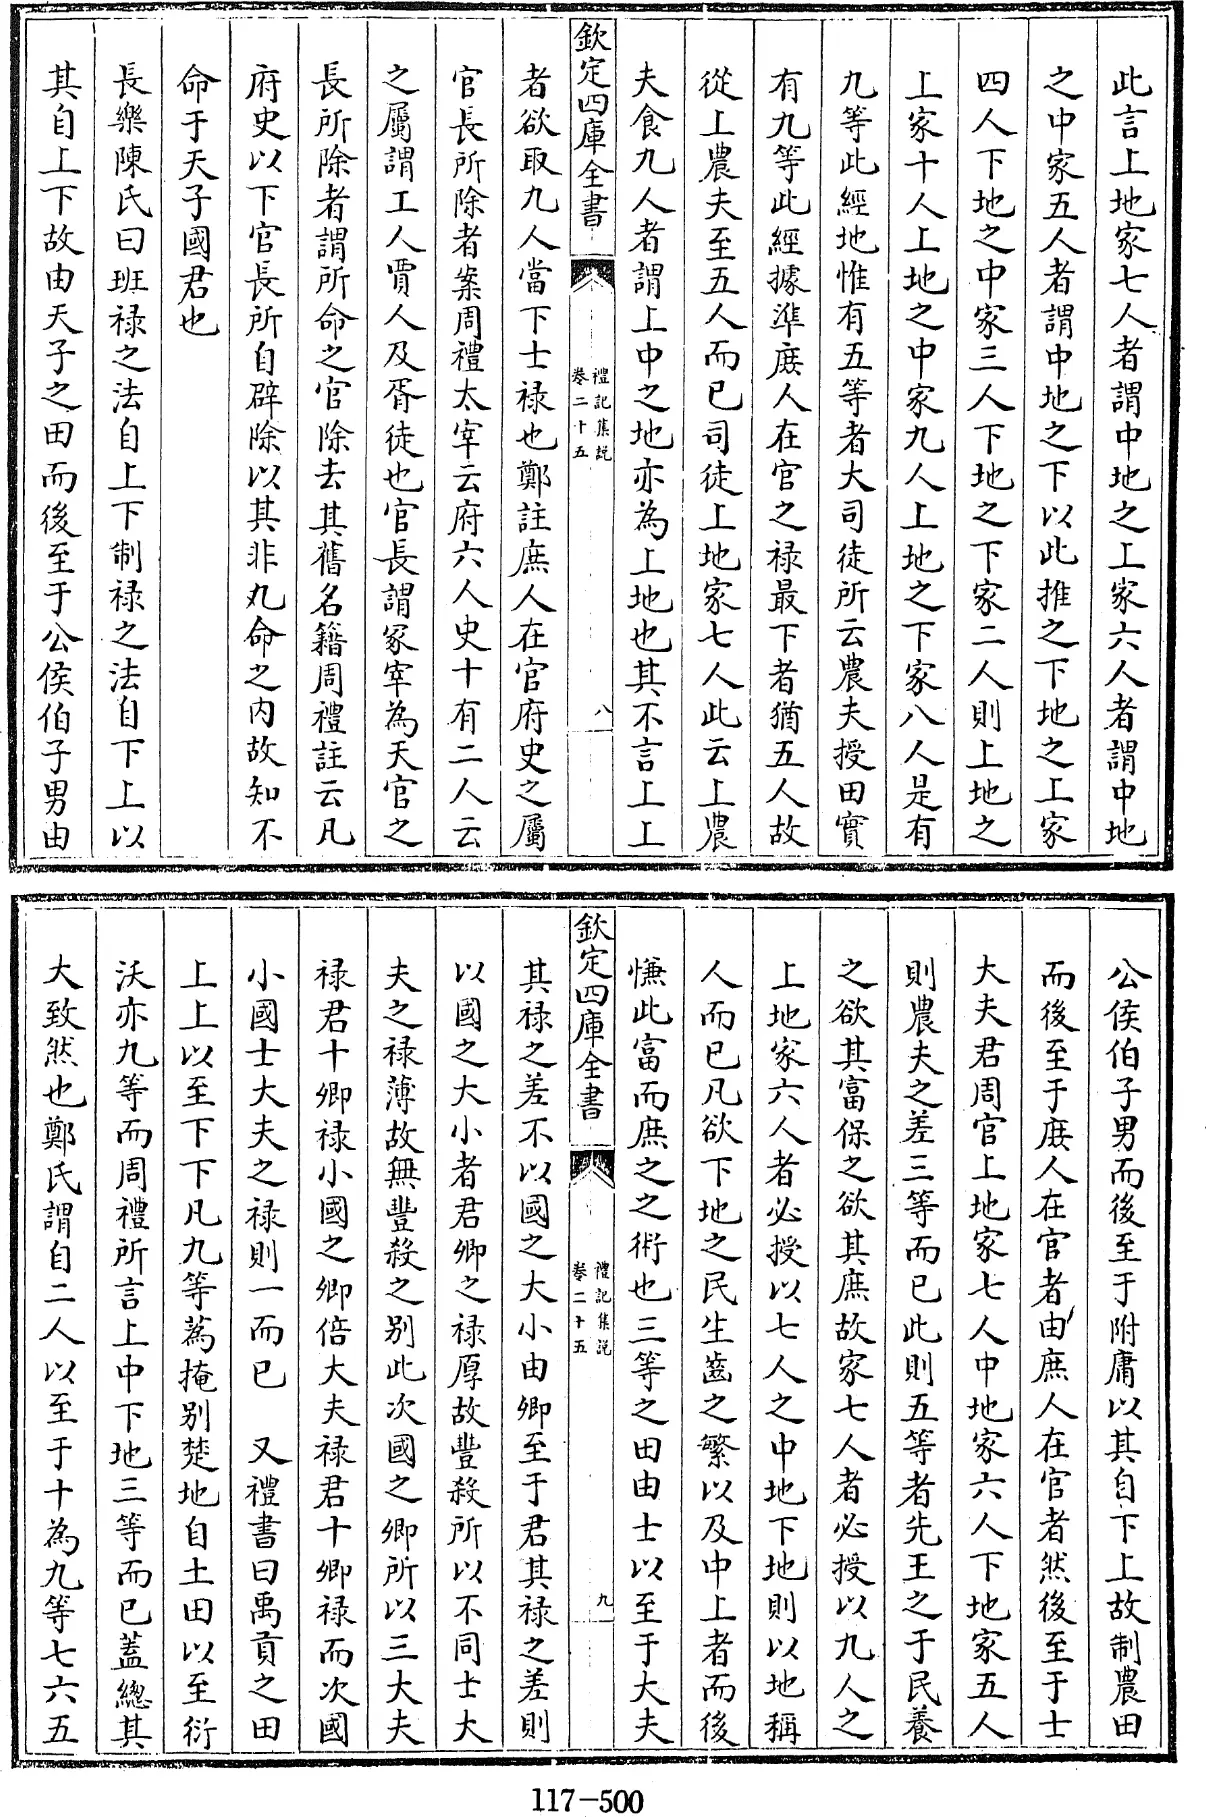 此言上地家七人者謂中地之上家六人者謂中地
之中家五人者謂中地之下以此推之下地之上家
四人下地之中家三人下地之下家二人則上地之
上家十人上地之中家九人上地之下家八人是有
九等此經地惟有五等者大司徒所云農夫授田實
有九等此經據準庶人在官之禄最下者猶五人故
從上農夫至五人而已司徒上地家七人此云上農
夫食九人者謂上中之地亦為上地也其不言上上
欽定四庫全書
禮記集說
卷二十五
八
者欲取九人當下士禄也鄭註庶人在官府史之屬
官長所除者案周禮太宰云府六人史十有二人云
之屬謂工人賈人及胥徒也官長謂冢宰為天官之
長所除者謂所命之官除去其舊名籍周禮註云凡
府史以下官長所自辟除以其非九命之内故知不
命于天子國君也
長樂陳氏曰班禄之法自上下制禄之法自下上以
其自上下故由天子之田而後至于公侯伯子男由
公侯伯子男而後至于附庸以其自下上故制農田
而後至于庶人在官者由庶人在官者然後至于士
大夫君周官上地家七人中地家六人下地家五人
則農夫之差三等而已此則五等者先王之于民養
之欲其富保之欲其庶故家七人者必授以九人之
上地家六人者必授以七人之中地下地則以地稱
人而已凡欲下地之民生齒之繁以及中上者而後
慊此富而庶之之術也三等之田由士以至于大夫
欽定四庫全書
禮記集說
卷二十五
九
其禄之差不以國之大小由卿至于君其禄之差則
以國之大小者君卿之禄厚故豐殺所以不同士大
夫之禄薄故無豐殺之别此次國之卿所以三大夫
禄君十卿禄小國之卿倍大夫禄君十卿禄而次國
小國士大夫之禄則一而已　又禮書曰禹貢之田
上上以至下下凡九等蔿掩别楚地自土田以至衍
沃亦九等而周禮所言上中下地三等而已蓋總其
大致然也鄭氏謂自二人以至于十為九等七六五
117-500